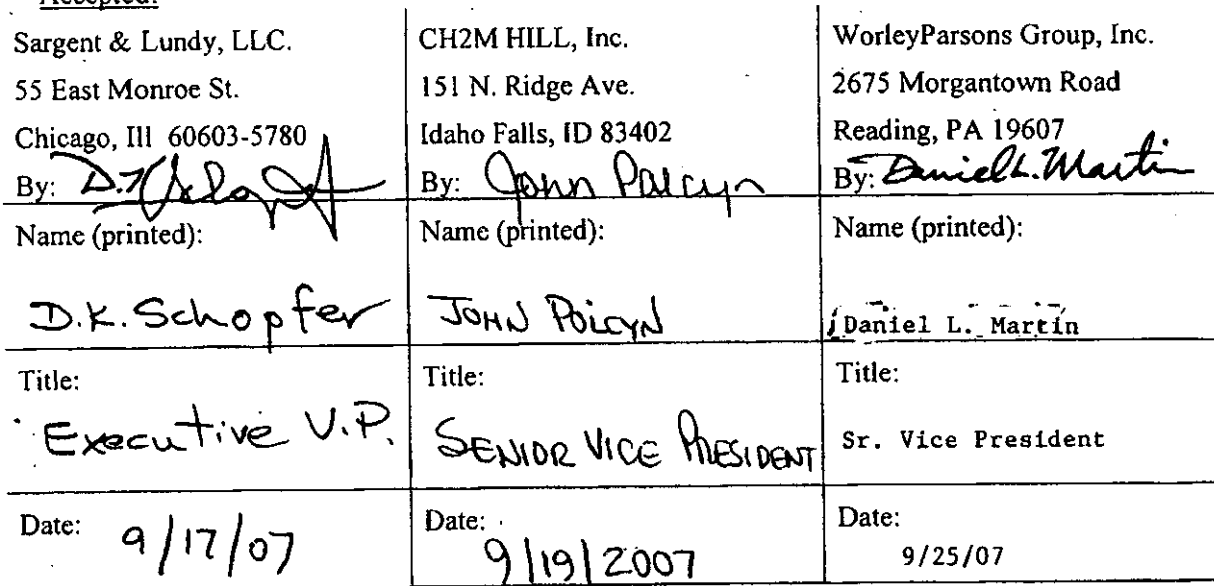 Accepted:
Sargent & Lundy, LLC.
55 East Monroe St.
Chicago, Ill 60603-5780
By:
Name (printed):
D.K. Schopfer
Title:
Executive V.P.
Date: 9/17/07
CH2M HILL, Inc.
151 N. Ridge Ave.
Idaho Falls, ID 83402
By: John Polcyn
Name (printed):
JOHN POLCYN
Title:
SENIOR VICE PRESIDENT
Date:
9/19/2007
WorleyParsons Group, Inc.
2675 Morgantown Road
Reading, PA 19607
By: Daniel L. Martin
Name (printed):
Daniel L. Martin
Title:
Sr. Vice President
Date:
9/25/07